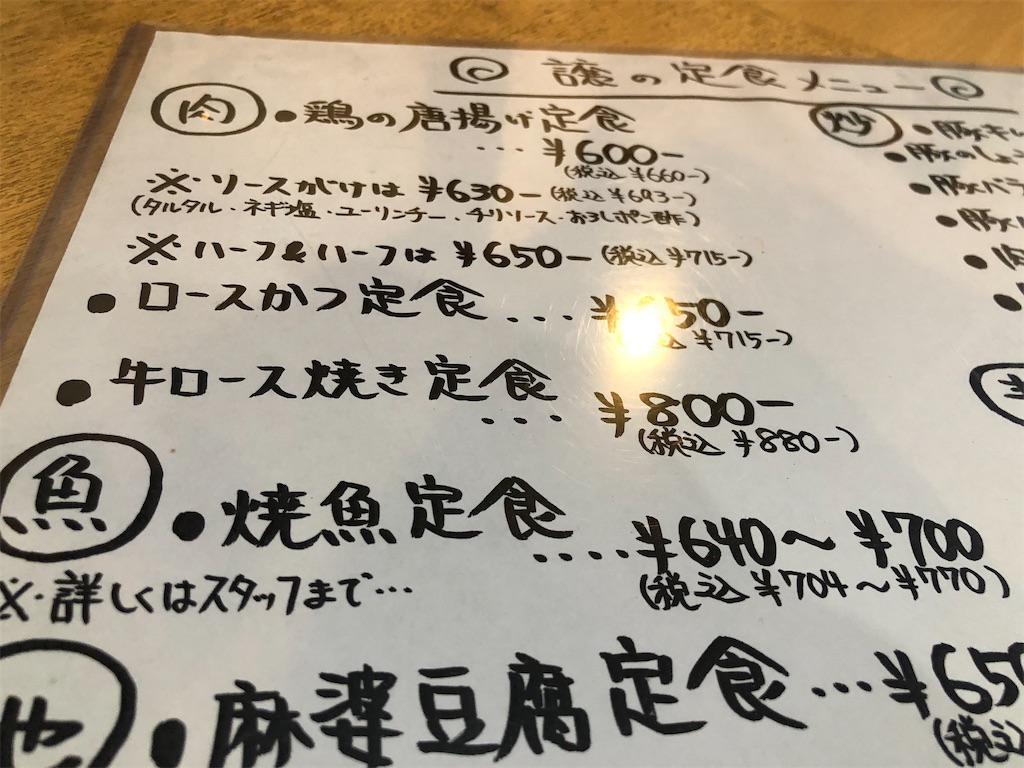 譲の定食メニュー
肉
・鶏の唐揚げ定食
… ¥600-
(税込¥660-)
※ソースがけは ¥630- (税込¥693-)
(タルタル・ネギ塩・ユーリンチー・チリソース・おろしポン酢)
※ハーフ&ハーフは ¥650- (税込¥715-)
・ロースかつ定食 … 50-
¥715-)
・牛ロース焼き定食
… ¥800-
(税込 ¥880-)
魚
・焼魚定食
…. ¥640～¥700
(税込 ¥704～¥770)
※詳しくはスタッフまで…
他
・麻婆豆腐定食 … ¥650
(税込
炒
・豚キム
・豚のしょう
・豚バラ
・豚
・肉